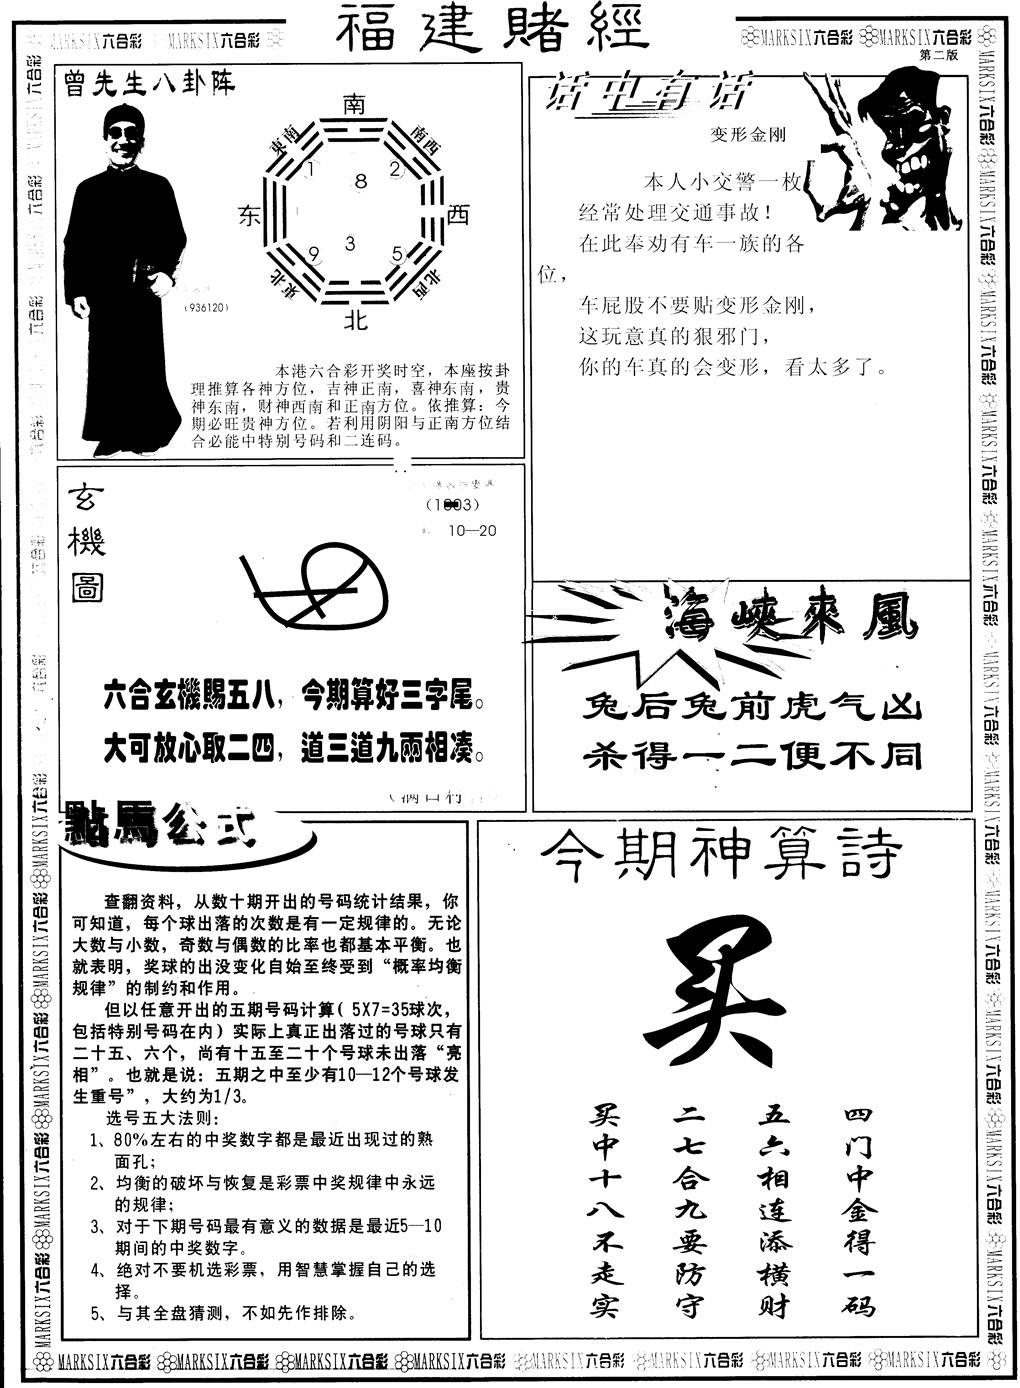 福建賭經
MARKSIX六合彩 MARKSIX六合彩
MARKSIX六合彩 MARKSIX六合彩
第二版
曾先生八卦阵
南
東南
南西
1
8
2
东
西
9
3
5
東北
北西
北
(936120)
本港六合彩开奖时空，本座按卦
理推算各神方位，吉神正南，喜神东南，贵
神东南，财神西南和正南方位。依推算：今
期必旺贵神方位。若利用阴阳与正南方位结
合必能中特别号码和二连码。
话中有话
变形金刚
本人小交警一枚
经常处理交通事故！
在此奉劝有车一族的各
位，
车屁股不要贴变形金刚，
这玩意真的狠邪门，
你的车真的会变形，看太多了。
玄機圖
10—20
六合玄機賜五八，今期算好三字尾。
大可放心取二四，道三道九兩相凑。
海峽來風
兔后兔前虎气凶
杀得一二便不同
點馬公式
查翻资料，从数十期开出的号码统计结果，你
可知道，每个球出落的次数是有一定规律的。无论
大数与小数，奇数与偶数的比率也都基本平衡。也
就表明，奖球的出没变化自始至终受到“概率均衡
规律”的制约和作用。
但以任意开出的五期号码计算( 5X7=35球次，
包括特别号码在内）实际上真正出落过的号球只有
二十五、六个，尚有十五至二十个号球未出落“亮
相”。也就是说：五期之中至少有10—12个号球发
生重号”，大约为1/3。
选号五大法则：
1、80%左右的中奖数字都是最近出现过的熟
面孔；
2、均衡的破坏与恢复是彩票中奖规律中永远
的规律；
3、对于下期号码最有意义的数据是最近5—10
期间的中奖数字。
4、绝对不要机选彩票，用智慧掌握自己的选
择。
5、与其全盘猜测，不如先作排除。
今期神算詩
买
四门中金得一码
五六相连添横财
二七合九要防守
买中十八不走实
MARKSIX六合彩 MARKSIX六合彩 MARKSIX六合彩 MARKSIX六合彩 MARKSIX六合彩 MARKSIX六合彩 MARKSIX六合彩 MARKSIX六合彩